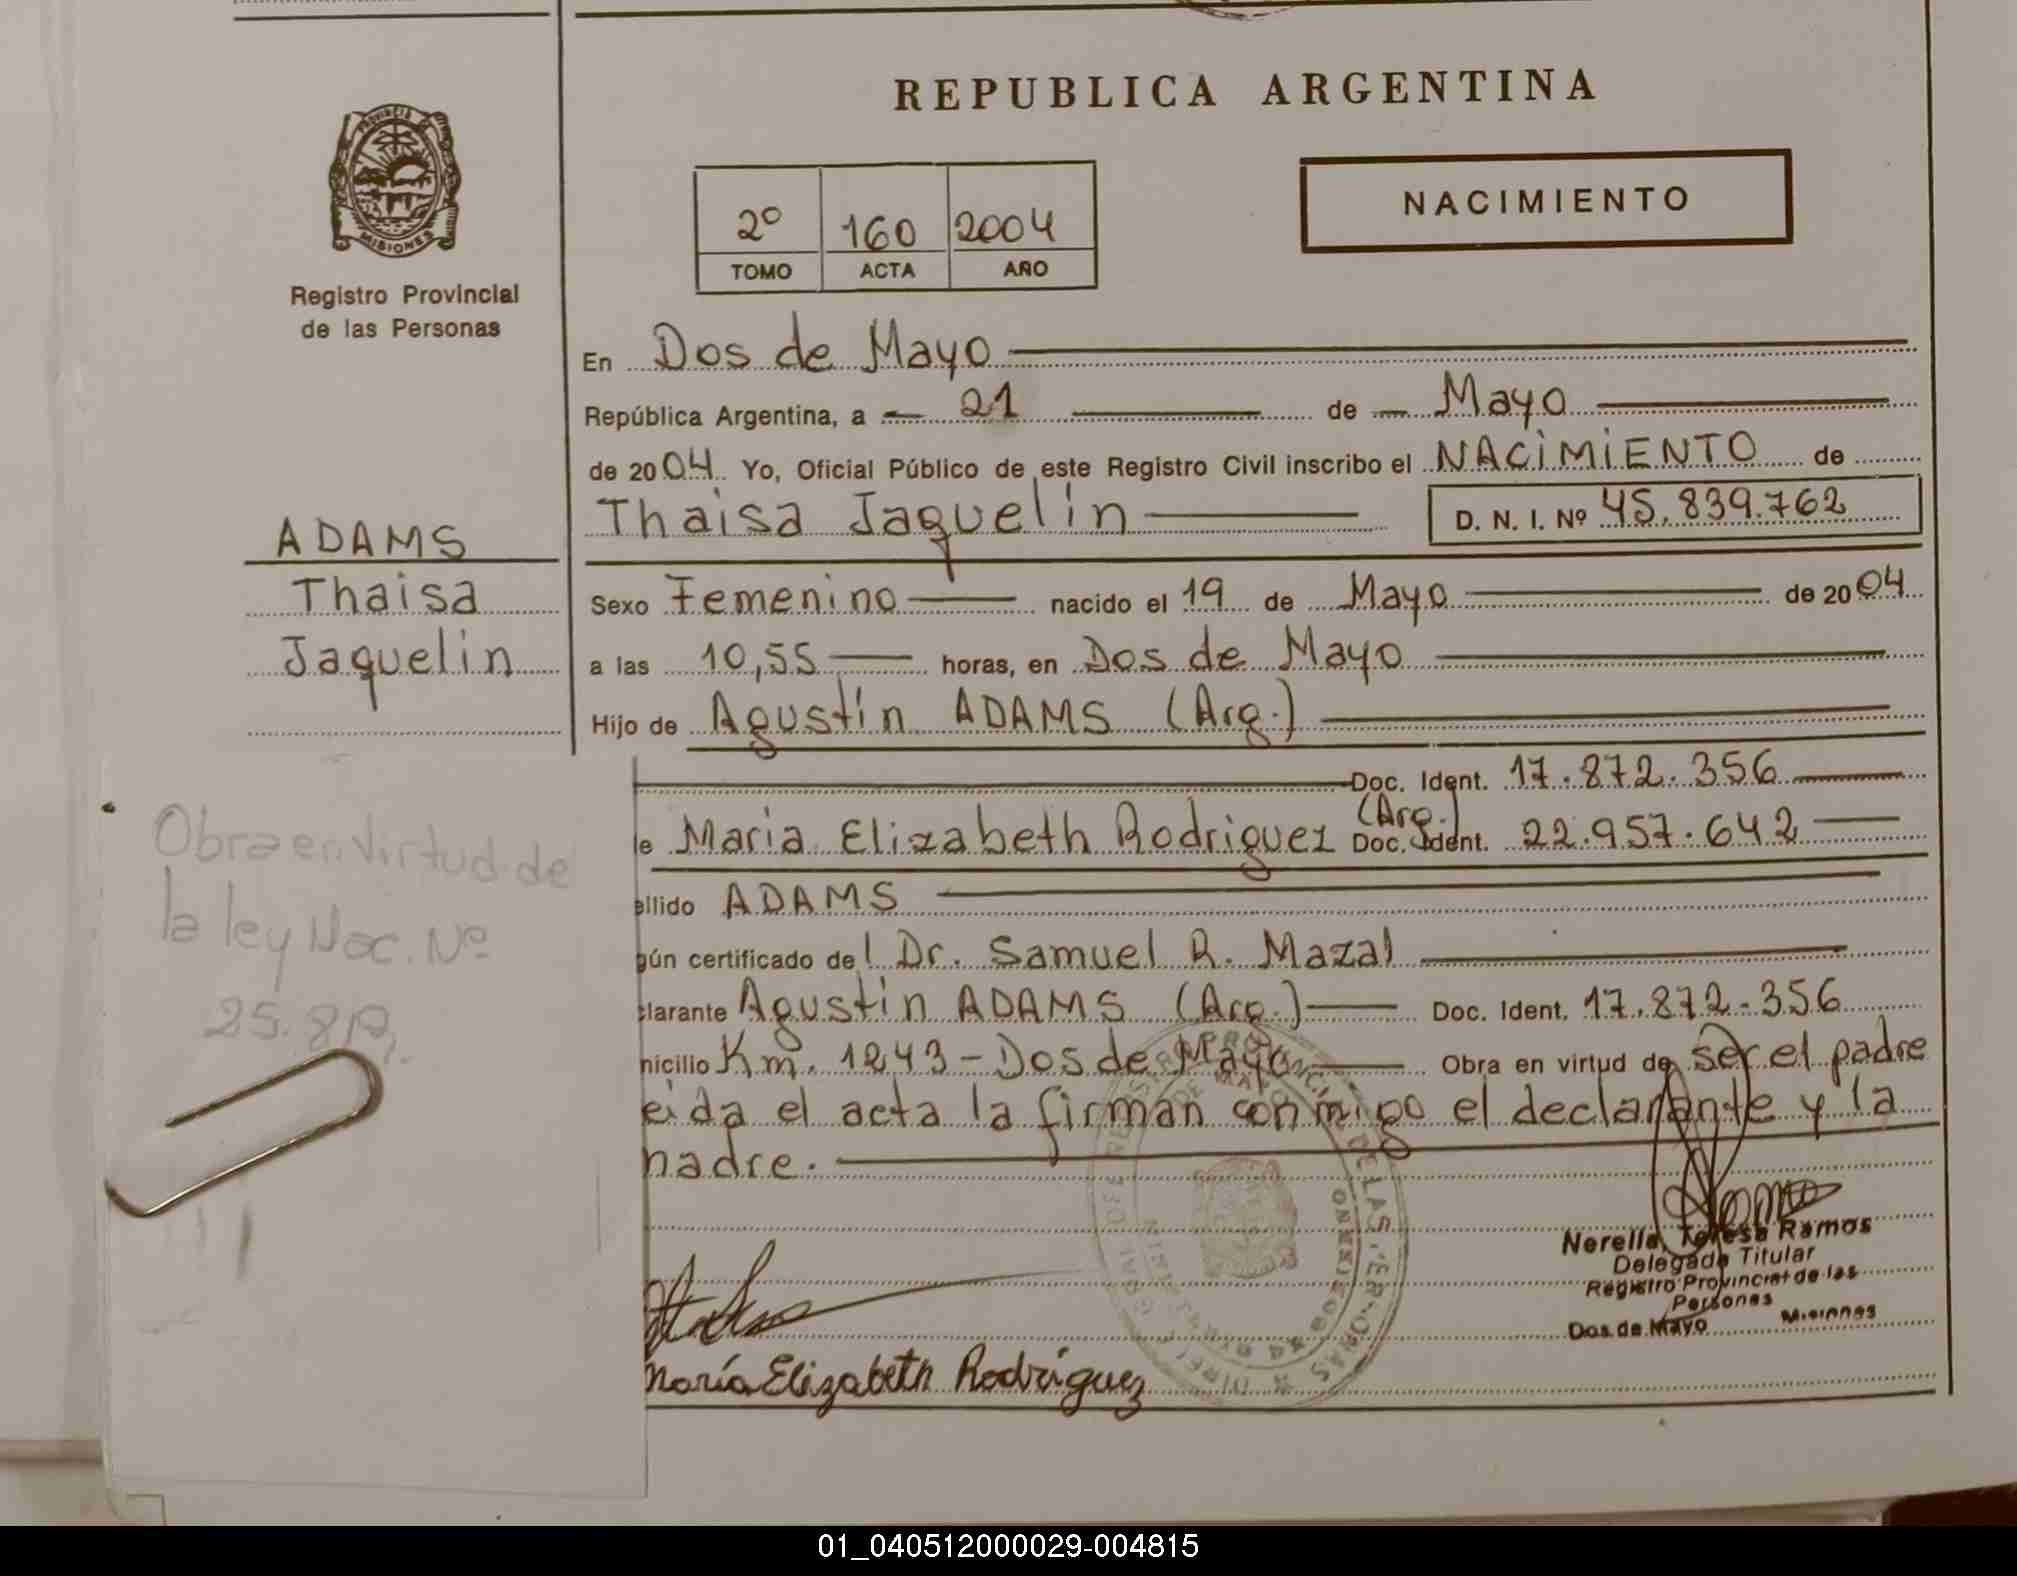 REPUBLICA ARGENTINA
PROVINCIA DE
MISIONES
Registro Provincial
de las Personas
2º 160 2004
TOMO ACTA AÑO
NACIMIENTO
En Dos de Mayo
República Argentina, a 21 de Mayo
de 2004. Yo, Oficial Público de este Registro Civil inscribo el NACIMIENTO de
Thaisa Jaquelin D. N. I. Nº 45.839.762
ADAMS
Thaisa
Jaquelin
Sexo Femenino nacido el 19 de Mayo de 2004
a las 10,55 horas, en Dos de Mayo
Hijo de Agustín ADAMS (Arg.)
Doc. Ident. 17.872.356
le Maria Elizabeth Rodriguez (Arg.) Doc. Ident. 22.957.642
ellido ADAMS
gún certificado de Dr. Samuel R. Mazal
clarante Agustín ADAMS (Arg.) Doc. Ident. 17.872.356
nicilio Km. 1243 - Dos de Mayo Obra en virtud de ser el padre
eida el acta la firman conmigo el declarante y la
nadre.
Obra en virtud de
la ley Nac. Nº
Nerella Teresa Ramos
Delegada Titular
Registro Provincial de las
Personas
Dos de Mayo Misiones
María Elizabeth Rodríguez
01_040512000029-004815